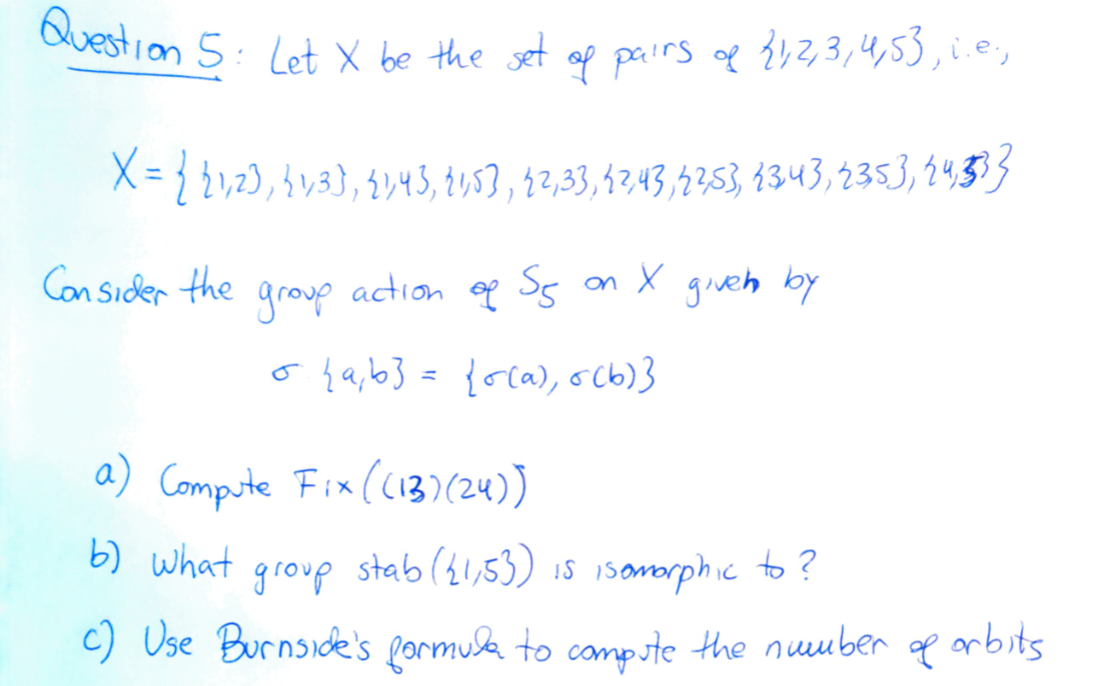 Question 5: Let X be the set of pairs of {1,2,3,4,5}, i.e.,
X = { {1,2}, {1,3}, {1,4}, {1,5}, {2,3}, {2,4}, {2,5}, {3,4}, {3,5}, {4,5} }
Consider the group action of S₅ on X given by
σ {a,b} = {σ(a), σ(b)}
a) Compute Fix((13)(24))
b) What group stab({1,5}) is isomorphic to?
c) Use Burnside's formula to compute the number of orbits